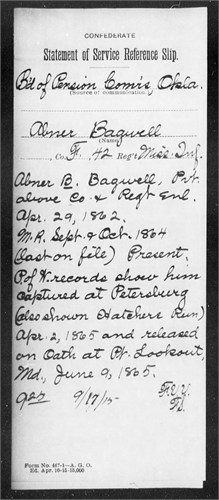 CONFEDERATE
Statement of Service Reference Slip.
Bd of Pension Com'rs, Okla.
(Source of communication)
Abner Bagwell
(Name)
Co. F. 42 Reg't Miss. Inf.
Abner B. Bagwell, Pvt.
above Co. & Regt Enl.
Apr. 29, 1862.
M.R. Sept. & Oct. 1864
(last on file) Present.
P of W. records show him
captured at Petersburg
(also shown Hatchers Run)
Apr. 2, 1865 and released
on Oath at Pt. Lookout,
Md., June 9, 1865.
9/17/15
Form No. 467-1—A. G. O.
Ed. Apr. 16-12-15,000